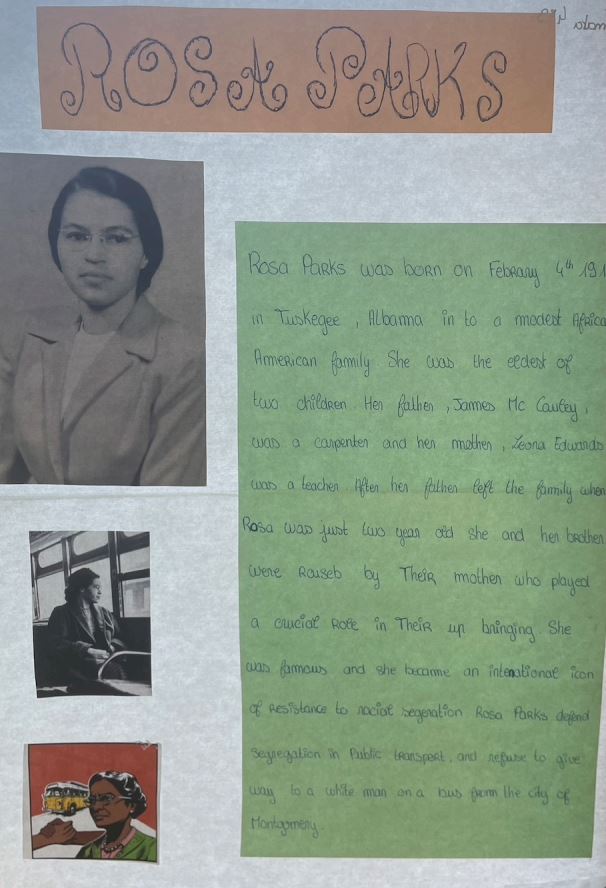 ROSA PARKS
Rosa Parks was born on Febrary 4th 191
in Tuskegee, Albama in to a modest Africa
American family. She was the eldest of
two children. Her father, Jammes Mc Cauley,
was a carpenter and her mother, Leona Edwards
was a teacher. After her father left the family when
Rosa was just two year old she and her brother
were Rouseb by Their mother who played
a crucial Role in Their up bringing She
was fammous and she became an intenational icon
of Resistance to racial segeration Rosa Parks defend
segregation in Public transpert, and refuse to give
way to a white man on a bus from the city of
Montgomery.